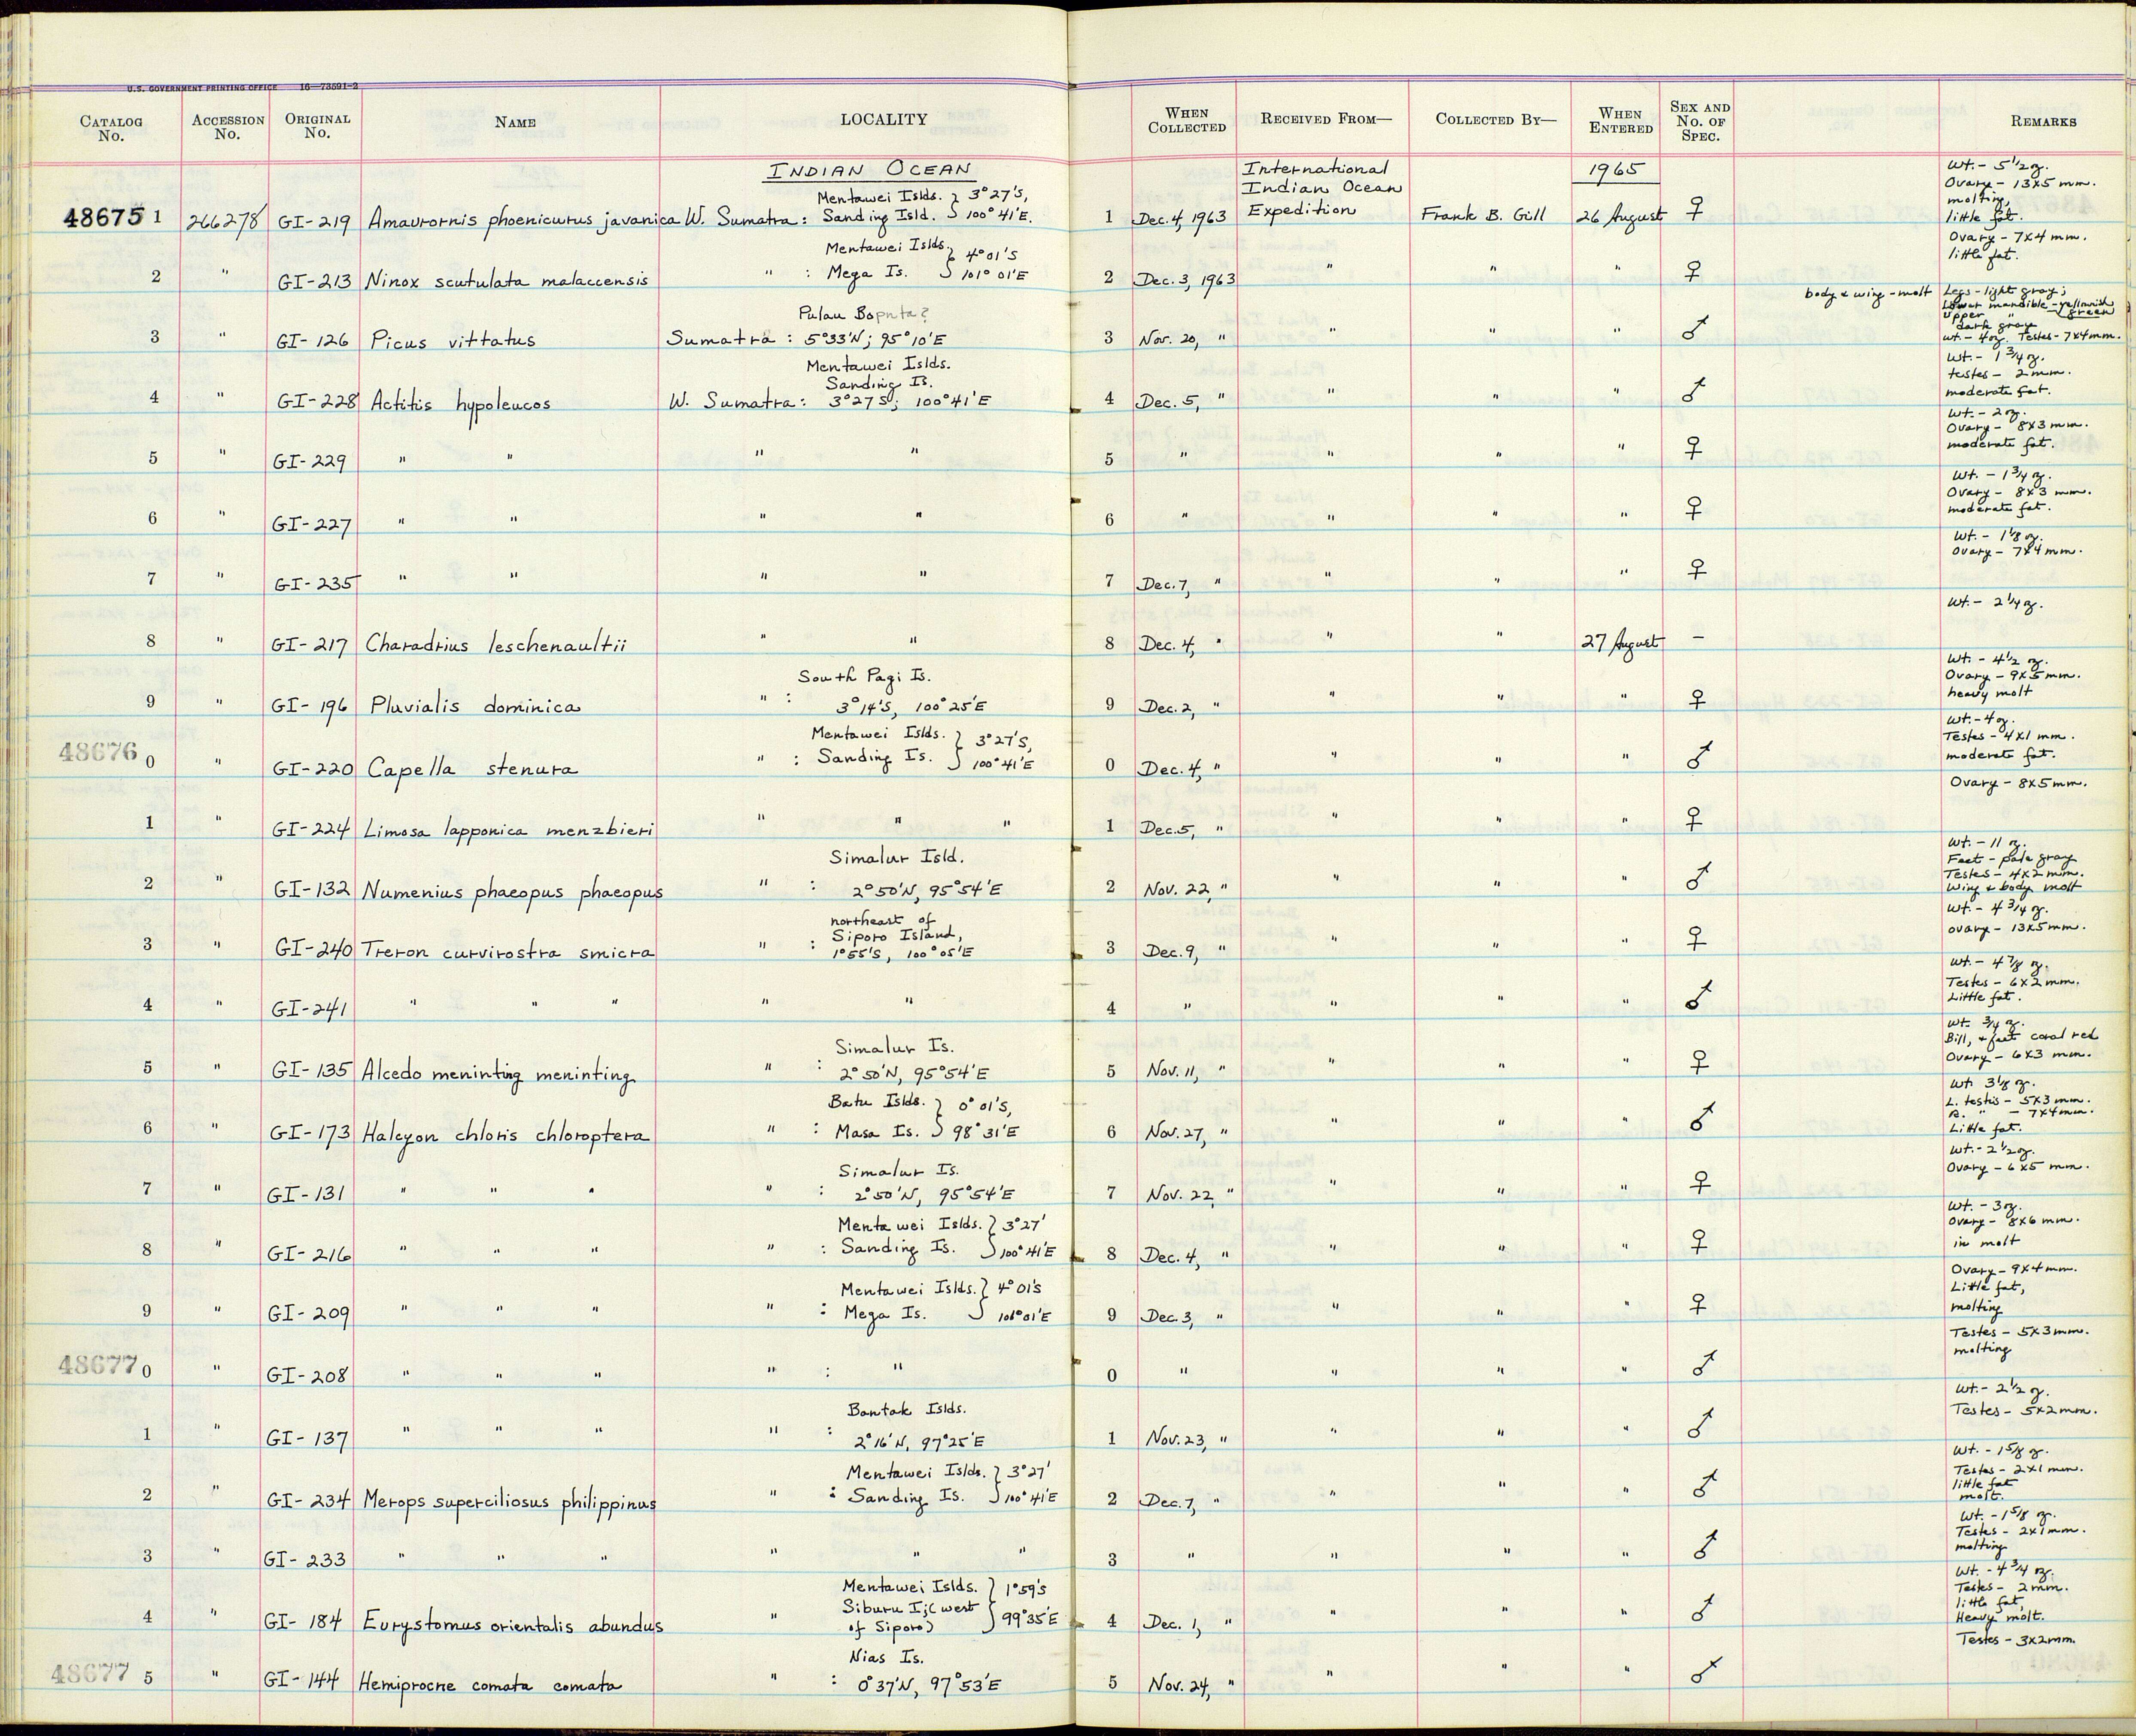 U.S. GOVERNMENT PRINTING OFFICE 16—73591-2
CATALOG No. ACCESSION No. ORIGINAL No. NAME LOCALITY WHEN COLLECTED RECEIVED FROM— COLLECTED BY— WHEN ENTERED SEX AND No. OF SPEC. REMARKS
INDIAN OCEAN International Indian Ocean Expedition 1965
48675 1 266278 GI-219 Amaurornis phoenicurus javanica W. Sumatra: Mentawei Islds. Sanding Isld. } 3°27'S, 100°41'E. 1 Dec. 4, 1963 Frank B. Gill 26 August ♀ Wt. - 5 1/2 oz. Ovary - 13x5 mm. molting, little fat.
2 " GI-213 Ninox scutulata malaccensis " : Mentawei Islds. Mega Is. } 4°01'S 101°01'E 2 Dec. 3, 1963 " " " ♀ Ovary - 7x4 mm. little fat.
3 " GI-126 Picus vittatus Sumatra : Pulau 5°33'N; 95°10'E 3 Nov. 20, " " " " ♂ body & wing - molt Legs - light gray; Lower mandible - yellowish green upper " dark gray wt. - 4 oz. Testes - 7x4 mm.
4 " GI-228 Actitis hypoleucos W. Sumatra: Mentawei Islds. Sanding Is. 3°27'S; 100°41'E 4 Dec. 5, " " " " ♂ Wt. - 1 3/4 oz. testes - 2 mm. moderate fat.
5 " GI-229 " " " " 5 " " " " ♀ Wt. - 2 oz. Ovary - 8x3 mm. moderate fat.
6 " GI-227 " " " " 6 " " " " ♀ Wt. - 1 3/4 oz. Ovary - 8x3 mm. moderate fat.
7 " GI-235 " " " " 7 Dec. 7, " " " " ♀ Wt. - 1 1/8 oz. Ovary - 7x4 mm.
8 " GI-217 Charadrius leschenaultii " " 8 Dec. 4, " " " 27 August - Wt. - 2 1/4 oz.
9 " GI-196 Pluvialis dominica " : South Pagi Is. 3°14'S, 100°25'E 9 Dec. 2, " " " " ♀ Wt. - 4 1/2 oz. Ovary - 9x5 mm. heavy molt
48676 0 " GI-220 Capella stenura " : Mentawei Islds. Sanding Is. } 3°27'S, 100°41'E 0 Dec. 4, " " " " ♂ Wt. - 4 oz. Testes - 4x1 mm. moderate fat.
1 " GI-224 Limosa lapponica menzbieri " " " 1 Dec. 5, " " " " ♀ Ovary - 8x5 mm.
2 " GI-132 Numenius phaeopus phaeopus " : Simalur Isld. 2°50'N, 95°54'E 2 Nov. 22, " " " " ♂ Wt. - 11 oz. Feet - pale gray Testes - 4x2 mm. Wing & body molt
3 " GI-240 Treron curvirostra smicra " : northeast of Siporo Island, 1°55'S, 100°05'E 3 Dec. 9, " " " " ♀ Wt. - 4 3/4 oz. ovary - 13x5 mm.
4 " GI-241 " " " " " 4 " " " " ♂ Wt. - 4 7/8 oz. Testes - 6x2 mm. Little fat.
5 " GI-135 Alcedo meninting meninting " : Simalur Is. 2°50'N, 95°54'E 5 Nov. 11, " " " " ♀ Wt. 3/4 oz. Bill, & feet coral red Ovary - 6x3 mm.
6 " GI-173 Halcyon chloris chloroptera " : Batu Islds. Masa Is. } 0°01'S, 98°31'E 6 Nov. 27, " " " " ♂ Wt. 3 1/8 oz. L. testis - 5x3 mm. R. " - 7x4 mm. Little fat.
7 " GI-131 " " " " : Simalur Is. 2°50'N, 95°54'E 7 Nov. 22, " " " " ♀ Wt. - 2 1/2 oz. Ovary - 6x5 mm.
8 " GI-216 " " " " : Mentawei Islds. Sanding Is. } 3°27' 100°41'E 8 Dec. 4, " " " " ♀ Wt. - 3 oz. Ovary - 8x6 mm. in molt
9 " GI-209 " " " " : Mentawei Islds. Mega Is. } 4°01'S 101°01'E 9 Dec. 3, " " " " ♀ Ovary - 9x4 mm. Little fat, molting
48677 0 " GI-208 " " " " : " 0 " " " " ♂ Testes - 5x3 mm. molting
1 " GI-137 " " " " : Bantak Islds. 2°16'N, 97°25'E 1 Nov. 23, " " " " ♂ Wt. - 2 1/2 oz. Testes - 5x2 mm.
2 " GI-234 Merops superciliosus philippinus " : Mentawei Islds. Sanding Is. } 3°27' 100°41'E 2 Dec. 7, " " " " ♂ Wt. - 1 5/8 oz. Testes - 2x1 mm. little fat molt.
3 " GI-233 " " " " " " 3 " " " " ♂ Wt. - 1 5/8 oz. Testes - 2x1 mm. molting
4 " GI-184 Eurystomus orientalis abundus " Mentawei Islds. Siburu I; (west of Siporo) } 1°59'S 99°35'E 4 Dec. 1, " " " " ♂ Wt. - 4 3/4 oz. Testes - 2 mm. little fat, Heavy molt.
48677 5 " GI-144 Hemiprocne comata comata " : Nias Is. 0°37'N, 97°53'E 5 Nov. 24, " " " " ♂ Testes - 3x2 mm.